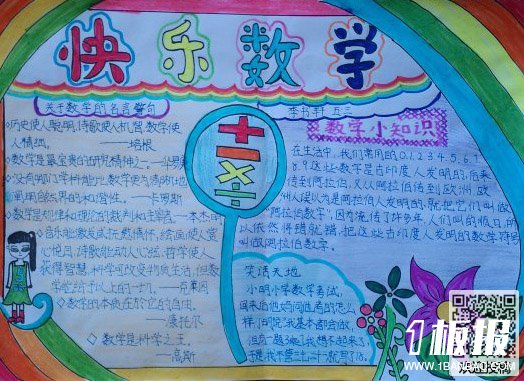 快乐数学
关于数学的名言警句
◇历史使人聪明,诗歌使人机智,数学使
人精细。
——培根
◇数学是最宝贵的研究精神之一。—华罗庚
◇没有哪门学科能比数学更为清晰地
阐明自然界的和谐性。—卡罗斯
◇数学是规律和理论的裁判和主宰者—本杰明
◇音乐能激发或抚慰情怀,绘画使人赏
心悦目,诗歌能动人心弦,哲学使人
获得智慧,科学可改变物质生活,但数
学能给予以上的一切。—克莱因
◇数学的本质在于它的自由
——康托尔
◇数学是科学之王。
——高斯
李书轩 五三
数学小知识
在生活中,我们常用的0.1.2.3.4.5.6.7
.8.9这些数字是古印度人发明的,后来
传到阿拉伯,又从阿拉伯传到欧洲,欧
洲人误以为是阿拉伯人发明的,就把它们叫做
“阿拉伯数字”,因为流传了许多年,人们叫的顺口,所
以依然将错就错,把这些古印度人发明的数学符号
叫做阿拉伯数字。
笑话天地
小明小学数学考试,
回来后他妈问他考的怎么
样,小明说:“我基本都会做,
但有一题
我想不起来了,
于是我不管三七二十八就写了18。
1板报
WWW.1BANBAO.COM